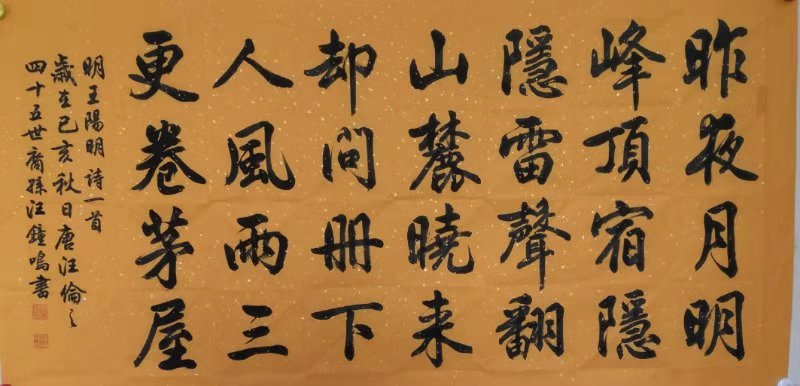 昨夜月明
峰頂宿隱
隱雷聲翻
山麓曉来
却問冊下
人風雨三
更卷茅屋
明王陽明诗一首
歲在己亥秋日唐汪倫之
四十五世裔孫汪鐘鳴書